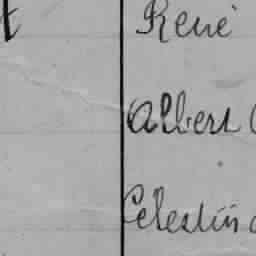 René
Albert
Célestin